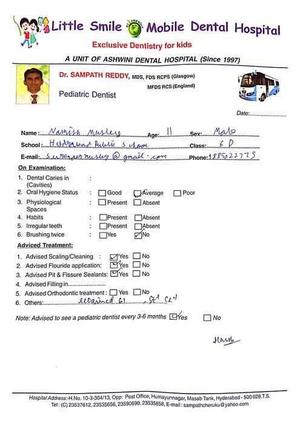 Little Smile Mobile Dental Hospital
Exclusive Dentistry for kids
A UNIT OF ASHWINI DENTAL HOSPITAL (Since 1997)
Dr. SAMPATH REDDY, MDS, FDS RCPS (Glasgow)
MFDS RCS (England)
Pediatric Dentist
Date:
Name: Age: 11 Sex: Male
School: Public School Class: 6 D
E-mail: @gmail.com Phone:
On Examination:
1. Dental Caries in :
(Cavities)
2. Oral Hygiene Status : Good Average Poor
3. Physiological : Present Absent
Spaces
4. Habits : Present Absent
5. Irregular teeth : Present Absent
6. Brushing twice : Yes No
Advised Treatment:
1. Advised Scaling/Cleaning : Yes No
2. Advised Flouride application: Yes No
3. Advised Pit & Fissure Sealants: Yes No
4. Advised Filling in
5. Advised Orthodontic treatment : Yes No
6. Others:
Note: Advised to see a pediatric dentist every 3-6 months Yes No
Hospital Address: H.No. 10-3-304/13, Opp: Humayunnagar, Masab Tank, Hyderabad - 500 028 T.S.
Tel: (C) 23537612, 23535656, 23590690, 23535858. E-mail: sampathcheruku@yahoo.com